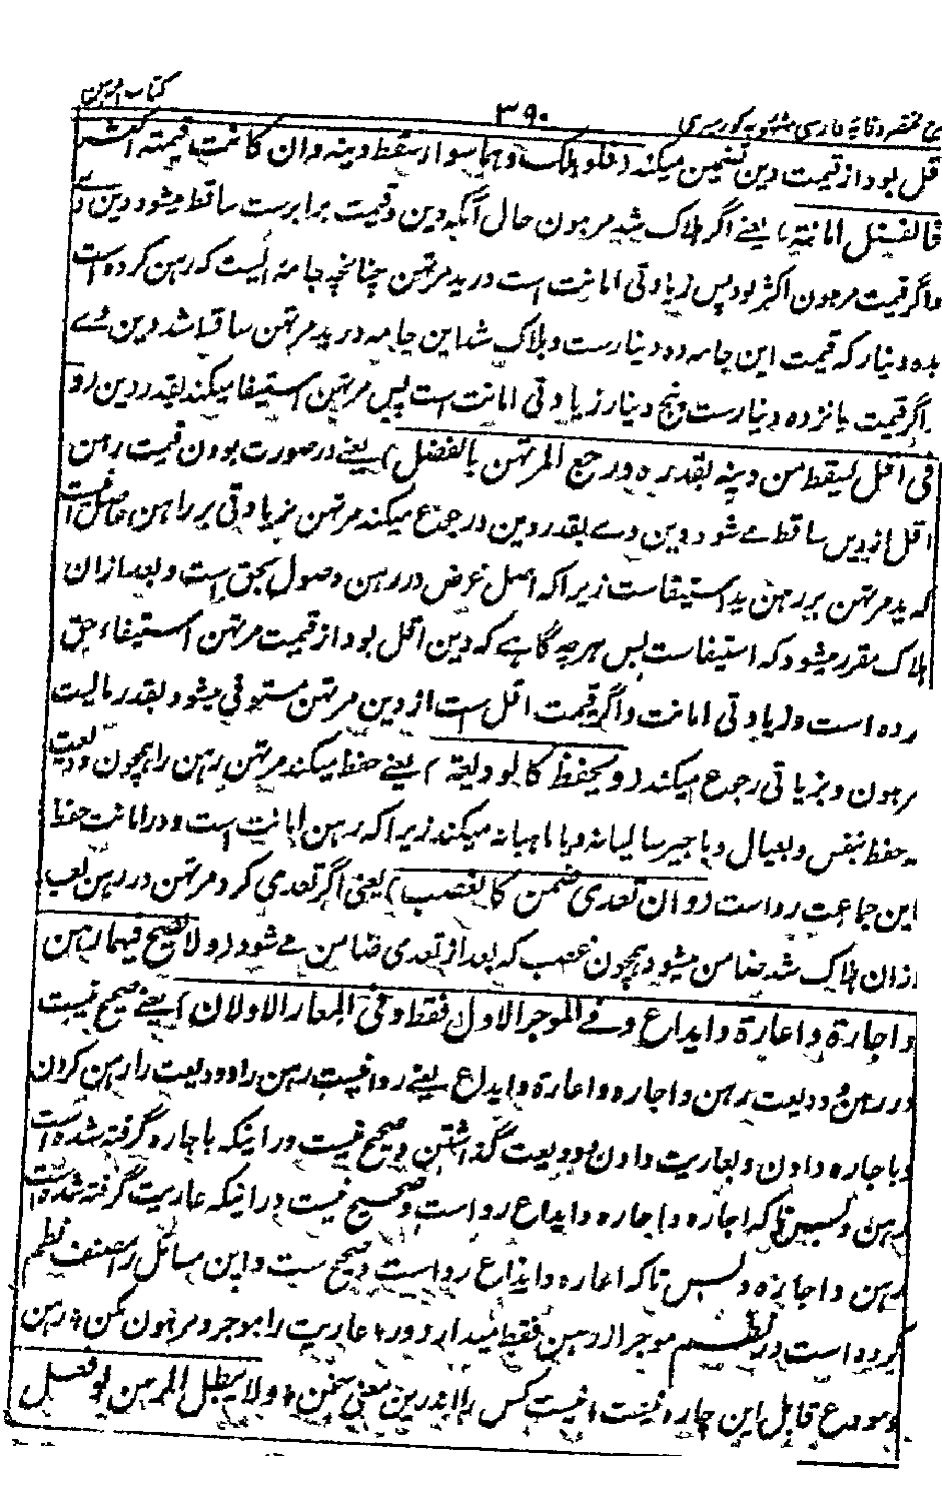 کتاب الرهن
۳۹۰
شرح مختصر وقایه فارسی مشهور به کورسری
اقل بود از قیمت دین تضمین میکند (فلو هلک وهما سواء سقط دینه وان کانت قیمته اکثر
فالفضل امانة) یعنے اگر هلاک شد مرهون حال آنکه دین وقیمت برابرست ساقط میشود دین وے
واگر قیمت مرهون اکثر بود پس زیادتی امانت است در ید مرتهن چنانچه جامه ایست که رهن کرده است
بده دینار که قیمت این جامه ده دینارست وهلاک شد این جامه در ید مرتهن ساقط باشد دین وے
اگر قیمت پانزده دینارست وپنج دینار زیادتی امانت است پس مرتهن استیفا میکند بقدر دین (و
فی اقل یسقط من دینه بقدره ورجع المرتهن بالفضل) یعنے در صورت بودن قیمت رهن
اقل از دین ساقط مے شود دین وے بقدر دین ورجوع میکند مرتهن بزیادتی بر راهن حاصل آنست
که ید مرتهن بر رهن ید استیفاست زیراکه اصل غرض در رهن وصول بحق است وبعد ازان
هلاک مقرر میشود که استیفاست پس هرچه گاہے که دین اقل بود از قیمت مرتهن استیفاء حق
کرده است وزیادتی امانت واگر قیمت اقل ست از دین مرتهن مستوفی میشود بقدر مالیت
مرهون وبزیاتی رجوع میکند (ویحفظ کالودیعة) یعنے حفظ میکند مرتهن رهن را همچون ودیعت
به حفظ بنفس وبعیال وبا جیر سالیانه وبا ماهیانه میکند زیراکه رهن امانت است ودر امانت حفظ
این جماعت رواست (وان تعدی ضمن کالغصب) یعنی اگر تعدی کرد مرتهن در رهن بعد
ازان هلاک شد ضامن میشود همچون غصب که بعد از تعدی ضامن مے شود (ولا تصح فیهما رهن
واجارة واعارة وایداع وفے الموجر الاول فقط وفی المعار الاولان) یعنے صحیح نیست
در رهن و ودیعت رهن واجاره واعارة وایداع یعنے روا نیست رهن را و ودیعت را رهن کردن
وباجاره دادن وبعاریت دادن وبودیعت گذاشتن وصحیح نیست در اینکه باجاره گرفته شده است
رهن وبس تاکه اجاره واجاره وایداع رواست وصحیح نیست در اینکه عاریت گرفته شده است
رهن واجازه وبس تاکه اعاره وایداع رواست وصحیح ست واین مسائل را مصنف نظم
کرده است در نظم موجر را رهن فقط میدار دور، عاریت را موجر ومرهون مکن، رهن
ومودع قابل این چار، نیست، نیست کس را اندرین معنی سخن، ولا یبطل الرهن لو فضل